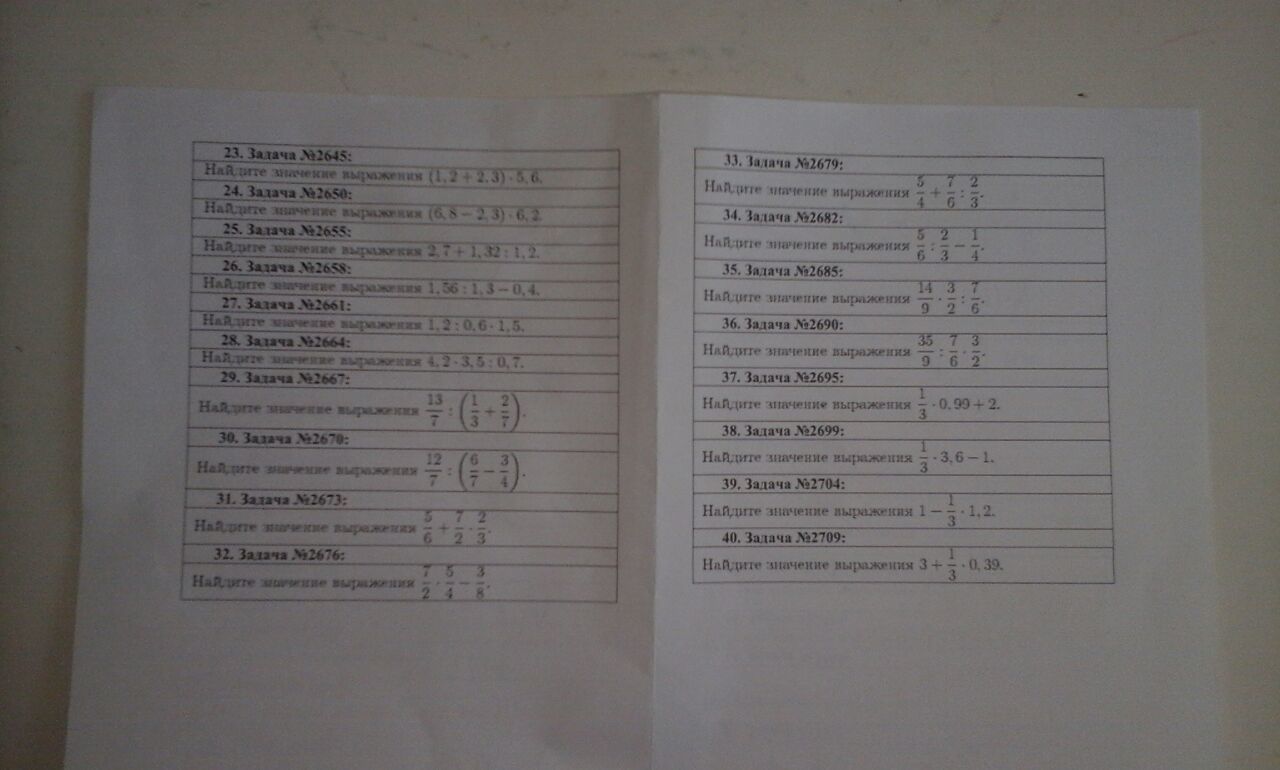 23. Задача №2645:
Найдите значение выражения (1,2 + 2,3) · 5,6.
24. Задача №2650:
Найдите значение выражения (6,8 − 2,3) · 6,2.
25. Задача №2655:
Найдите значение выражения 2,7 + 1,32 : 1,2.
26. Задача №2658:
Найдите значение выражения 1,56 : 1,3 − 0,4.
27. Задача №2661:
Найдите значение выражения 1,2 : 0,6 · 1,5.
28. Задача №2664:
Найдите значение выражения 4,2 · 3,5 : 0,7.
29. Задача №2667:
Найдите значение выражения 13/7 : (1/3 + 2/7).
30. Задача №2670:
Найдите значение выражения 12/7 : (6/7 − 3/4).
31. Задача №2673:
Найдите значение выражения 5/6 + 7/2 · 2/3.
32. Задача №2676:
Найдите значение выражения 7/2 · 5/4 − 3/8.
33. Задача №2679:
Найдите значение выражения 5/4 + 7/6 : 2/3.
34. Задача №2682:
Найдите значение выражения 5/6 : 2/3 − 1/4.
35. Задача №2685:
Найдите значение выражения 14/9 · 3/2 : 7/6.
36. Задача №2690:
Найдите значение выражения 35/9 : 7/6 · 3/2.
37. Задача №2695:
Найдите значение выражения 1/3 · 0,99 + 2.
38. Задача №2699:
Найдите значение выражения 1/3 · 3,6 − 1.
39. Задача №2704:
Найдите значение выражения 1 − 1/3 · 1,2.
40. Задача №2709:
Найдите значение выражения 3 + 1/3 · 0,39.